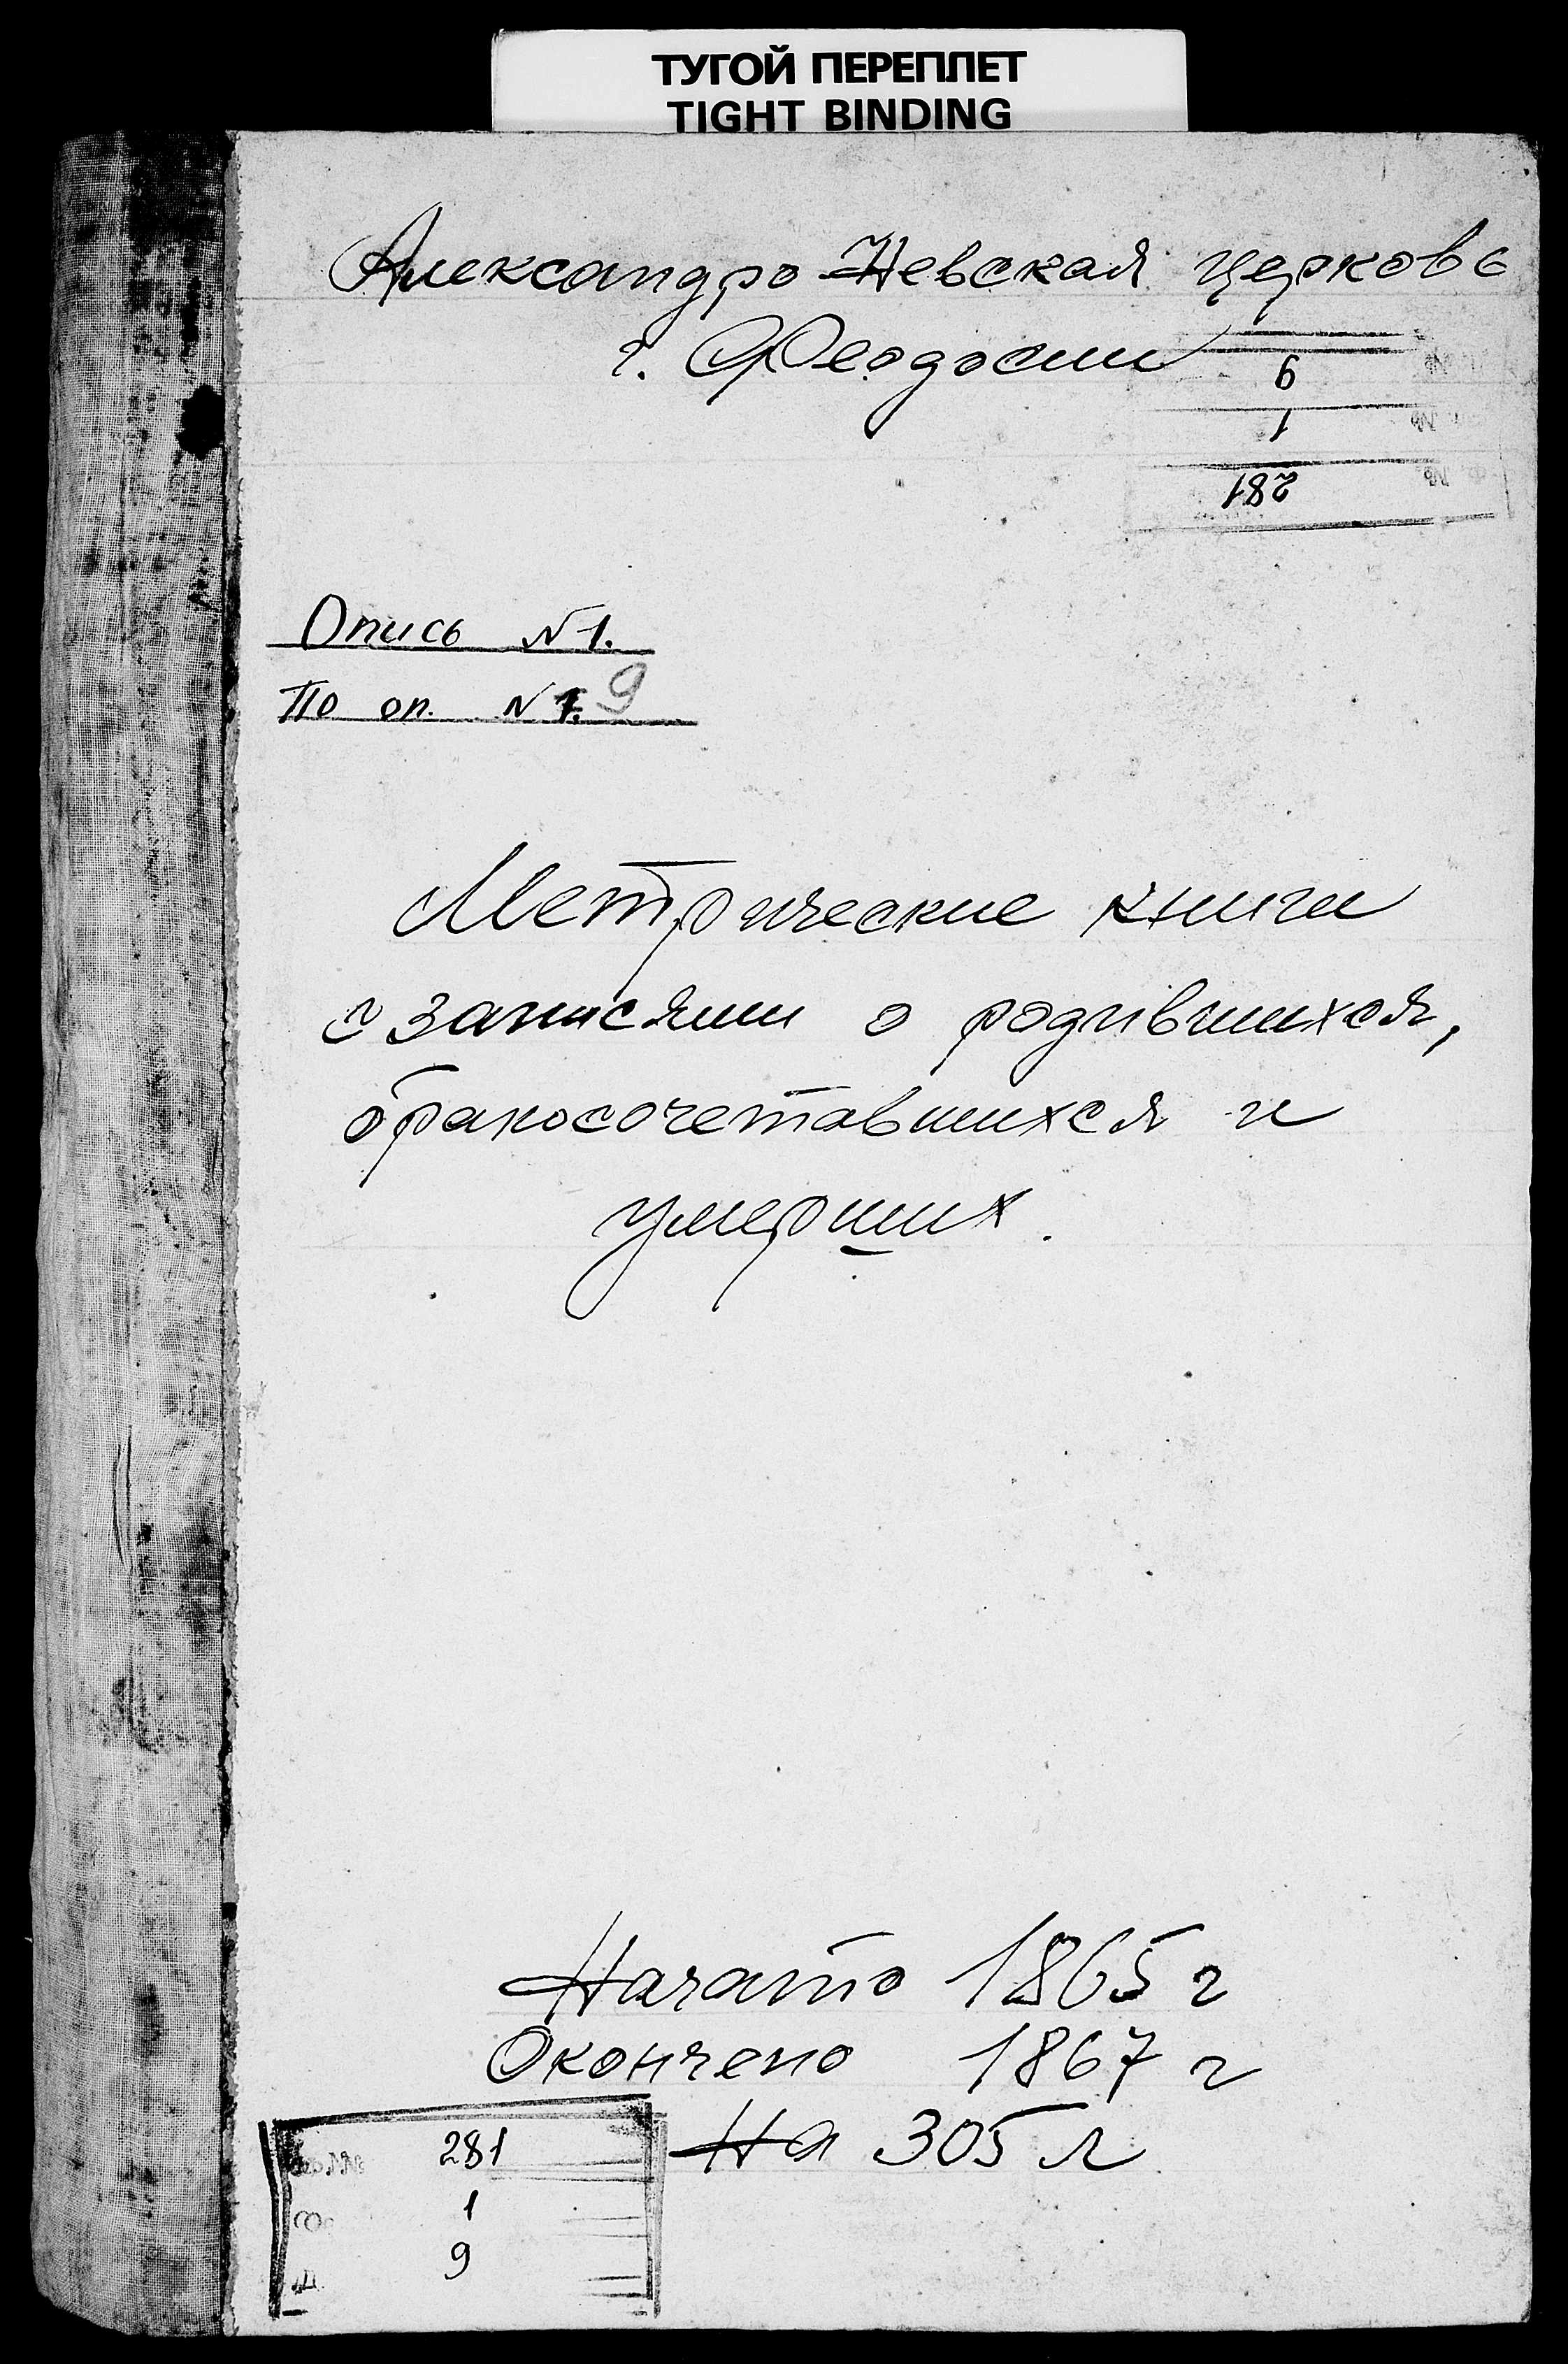 ТУГОЙ ПЕРЕПЛЕТ
TIGHT BINDING
Александро-Невская церковь
г. Феодосии
9
1
281
Опись N 1.
По оп. N 1. 9
Метрические книги
с записями о родившихся,
бракосочетавшихся и
умерших.
Начато 1865 г
Окончено 1867 г
На 305 л
281
1
9